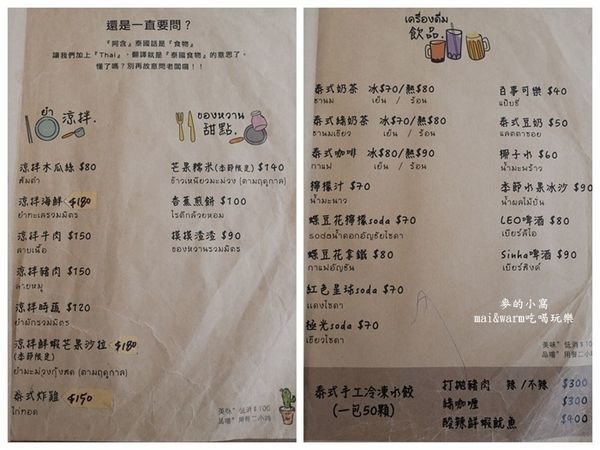 還是一直要問？
『阿含』泰國話是『食物』
讓我們加上『Thai』，翻譯就是『泰國食物』的意思了。
懂了嗎？別再故意問老闆囉！！
ยำ
涼拌.
涼拌木瓜絲 $80
ส้มตำ
涼拌海鮮 $180
ยำทะเลรวมมิตร
涼拌牛肉 $150
ลาบเนื้อ
涼拌豬肉 $150
ลาบหมู
涼拌時蔬 $120
ยำผักรวมมิตร
涼拌鮮蝦芒果沙拉 $180
(季節限定)
ยำมะม่วงกุ้งสด (ตามฤดูกาล)
泰式炸雞 $150
ไก่ทอด
ของหวาน
甜點.
芒果糯米(季節限定) $140
ข้าวเหนียวมะม่วง (ตามฤดูกาล)
香蕉煎餅 $100
โรตีกล้วยหอม
摸摸渣渣 $90
ของหวานรวมมิตร
美味" 低消 $100
品嚐" 用餐二小時
เครื่องดื่ม
飲品.
泰式奶茶 冰$70/熱$80
ชานม เย็น / ร้อน
泰式綠奶茶 冰$70/熱$80
ชานมเขียว เย็น / ร้อน
泰式咖啡 冰$80/熱$90
กาแฟ เย็น / ร้อน
檸檬汁 $70
น้ำมะนาว
蝶豆花檸檬soda $70
sodaน้ำดอกอัญชัยโซดา
蝶豆花拿鐵 $80
กาแฟอัญชัน
紅色星球soda $70
แดงโซดา
極光soda $70
เขียวโซดา
百事可樂 $40
แป๊ปซี่
泰式豆奶 $50
แลคตาซอย
椰子水 $60
น้ำมะพร้าว
季節水果冰沙 $90
น้ำผลไม้ปั่น
LEO啤酒 $80
เบียร์ลีโอ
Sinha啤酒 $90
เบียร์สิงห์
夢的小窩
mai&warm吃喝玩樂
美味" 低消 $100
品嚐" 用餐二小時
泰式手工冷凍水餃
(一包50顆)
打拋豬肉 辣 /不辣 $300
綠咖哩 $300
酸辣鮮蝦魷魚 $400